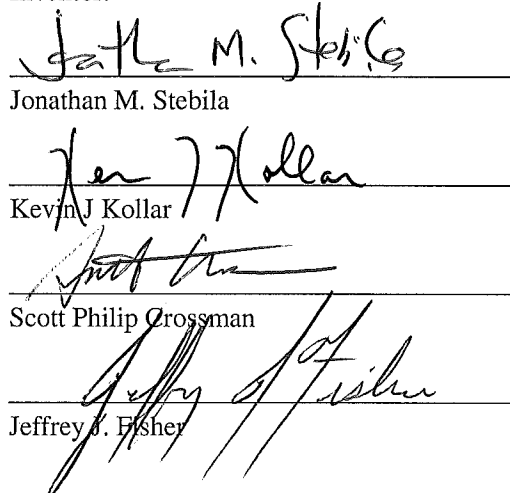 Jonathan M. Stebila
Jonathan M. Stebila
Kevin J Kollar
Kevin J Kollar
Scott Philip Crossman
Jeffrey J. Fisher
Jeffrey J. Fisher